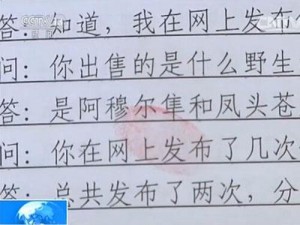 答：知道，我在网上发布
问：你出售的是什么野生
答：是阿穆尔隼和凤头苍
问：你在网上发布了几次
答：总共发布了两次，分